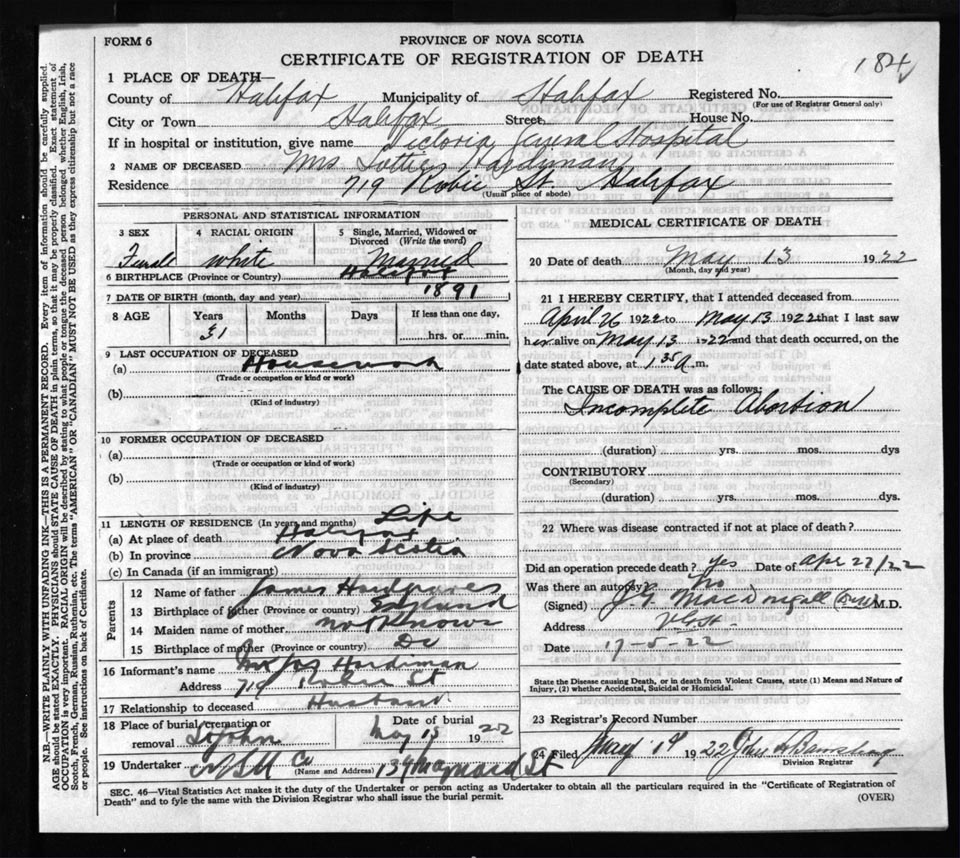 FORM 6
PROVINCE OF NOVA SCOTIA
CERTIFICATE OF REGISTRATION OF DEATH
184
1 PLACE OF DEATH—
County of Halifax Municipality of Halifax Registered No.
(For use of Registrar General only)
City or Town Halifax Street House No.
If in hospital or institution, give name Victoria General Hospital
2 NAME OF DECEASED Mrs Lottie Hardyman
Residence 719 Robie St. Halifax
(Usual place of abode)
PERSONAL AND STATISTICAL INFORMATION
3 SEX 4 RACIAL ORIGIN 5 Single, Married, Widowed or Divorced (Write the word)
Female White Married
6 BIRTHPLACE (Province or Country) Halifax
7 DATE OF BIRTH (month, day and year) 1891
8 AGE Years Months Days If less than one day,
31 hrs. or min.
9 LAST OCCUPATION OF DECEASED
(a) Housework
(Trade or occupation or kind or work)
(b)
(Kind of industry)
10 FORMER OCCUPATION OF DECEASED
(a)
(Trade or occupation or kind or work)
(b)
(Kind of industry)
11 LENGTH OF RESIDENCE (In years and months) Life
(a) At place of death Halifax
(b) In province Nova Scotia
(c) In Canada (if an immigrant)
Parents
12 Name of father James Hardgraves
13 Birthplace of father (Province or country) England
14 Maiden name of mother not Known
15 Birthplace of mother (Province or country) Do
16 Informant's name Mr Jas Hardiman
Address 719 Robie St
17 Relationship to deceased Husband
18 Place of burial, cremation or removal St John Date of burial May 15 1922
19 Undertaker Co (Name and Address) 134 Maynard St
MEDICAL CERTIFICATE OF DEATH
20 Date of death May 13 1922
(Month, day and year)
21 I HEREBY CERTIFY, that I attended deceased from
April 26 1922 to May 13 1922 that I last saw
her alive on May 13 1922 and that death occurred, on the
date stated above, at 1.35 A. m.
The CAUSE OF DEATH was as follows:
Incomplete Abortion
(duration) yrs. mos. dys
CONTRIBUTORY
(Secondary)
(duration) yrs. mos. dys.
22 Where was disease contracted if not at place of death?
Did an operation precede death? yes Date of Apr 27/22
Was there an autopsy? No
(Signed) M.D.
Address
Date 17-5-22
State the Disease causing Death, or in death from Violent Causes, state (1) Means and Nature of
Injury, (2) whether Accidental, Suicidal or Homicidal.
23 Registrar's Record Number
24 Filed May 17 1922
Division Registrar
SEC. 46—Vital Statistics Act makes it the duty of the Undertaker or person acting as Undertaker to obtain all the particulars required in the "Certificate of Registration of
Death" and to fyle the same with the Division Registrar who shall issue the burial permit.
(OVER)
N.B.—WRITE PLAINLY WITH UNFADING INK—THIS IS A PERMANENT RECORD. Every item of information should be carefully supplied.
AGE should be stated EXACTLY. PHYSICIANS should STATE CAUSE OF DEATH in plain terms, so that it may be properly classified. Exact statement of
OCCUPATION is very important. RACIAL ORIGIN will be described by stating to what people or tongue the deceased person belonged, whether English, Irish,
Scotch, French, German, Russian, Ruthenian, etc. The terms "AMERICAN" OR "CANADIAN" MUST NOT BE USED as they express citizenship but not a race
or people. See instructions on back of Certificate.